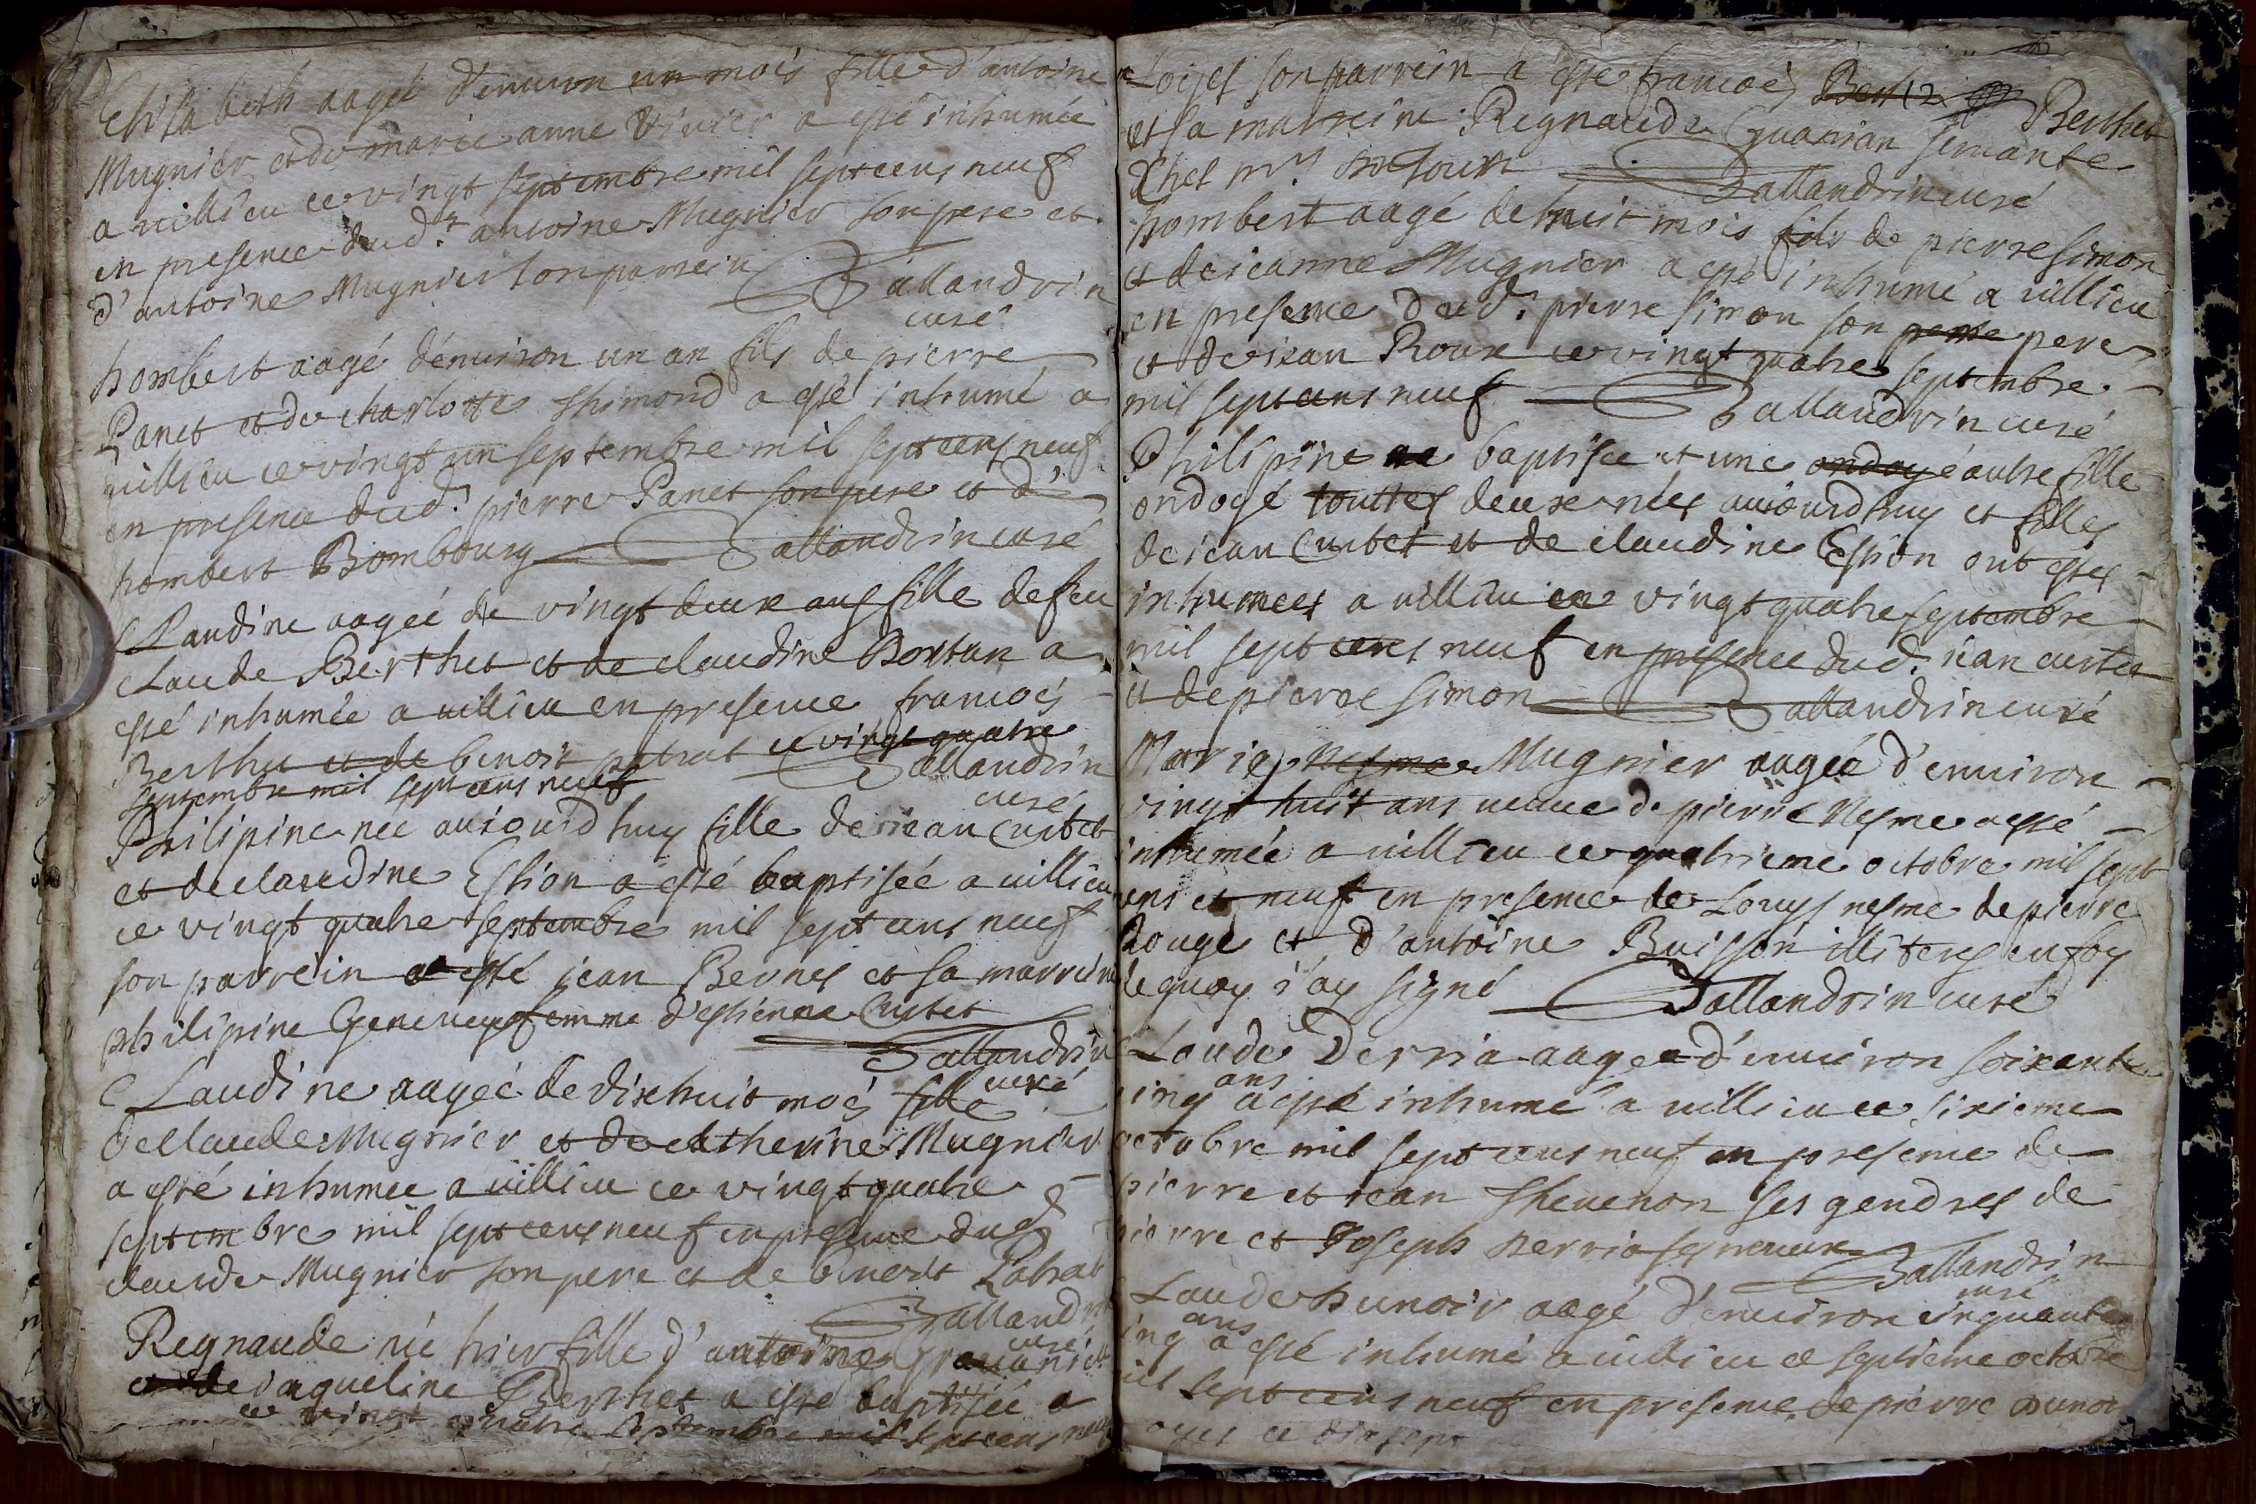 Elisabeth aagée d'enuiron un mois fille d'antoine
Mugnier et de marie anne Viuier a esté inhumée
a uillieu ce vingt septembre mil sept cens neuf
en presence dud.t antoine Mugnier son pere et
d'antoine Mugnier son parrein Ballandrin
curé
hombert aagé d'enuiron un an fils de pierre
Panet et de charlotte Shimond a esté inhumé a
uillieu ce vingt un septembre mil sept cens neuf
en presence dud. pierre Panet son pere et d'
hombert Bombourg Ballandrin curé
Claudine aagée de vingt deux ans fille de feu
claude Berthet et de claudine Dortan a
esté inhumée a uillieu en presence francois
Berthet et de benoit patrat ce vingt quatre
septembre mil sept cens neuf Ballandrin
curé
Philipine née auiourdhuy fille de iean Curtet
et de claudine Estion a esté baptisée a uillieu
ce vingt quatre septembre mil sept cens neuf
son parrein a esté jean Bernet et sa marreine
philipine femme d'estienne Curtet
Ballandrin
curé
Claudine aagée de dixhuit mois fille
de claude Mugnier et de catherine Mugnier
a esté inhumee a uillieu ce vingt quatre
septembre mil sept cens neuf en presence dud
claude Mugnier son pere et de benoit Patrat
Ballandrin
curé
Regnaude née hier fille d'antoine
et de iaqueline Berthet a esté baptisée a
ce vingt quatre septembre mil sept cens neuf
Loyes son parrein a esté francois Berthet
et sa marreine Regnaude Guarian seruante
Chet mr
Ballandrin curé
hombert aagé de huit mois fils de pierre simon
et de ieanne Mugnier a esté inhumé a uillieu
en presence dud. pierre simon son pere
et de iean Roux ce vingt quatre septembre
mil sept cens neuf Ballandrin curé
Philipine baptisée et une ondoyé autre fille
ondoyé touttes deux nées auiourdhuy et filles
de iean Curtet et de claudine Estion ont estes
inhumees a uillieu ce vingt quatre septembre
mil sept cens neuf en presence dud. iean curtet
et de pierre simon Ballandrin curé
Marie Nesme Mugnier aagée d'enuiron
vingt huit ans ueuue de pierre Nesme a esté
inhumée a uillieu ce quatrieme octobre mil sept
cens et neuf en presence de Louys nesme de pierre
Rouge et d'antoine Buisson illiteres en foy
de quoy i'ay signé Ballandrin curé
Claude Derria aagee d'enuiron soixante
cinq ans a esté inhumé a uillieu ce sixieme
octobre mil sept cens neuf en presence de
pierre et iean Sheuenon ses gendres de
pierre et Joseph Derria ses neueux
Ballandrin
curé
Claude Dunoir aagé d'enuiron cinquante
cinq ans a esté inhumé a uillieu ce septieme octobre
mil sept cens neuf en presence de pierre Dunoir